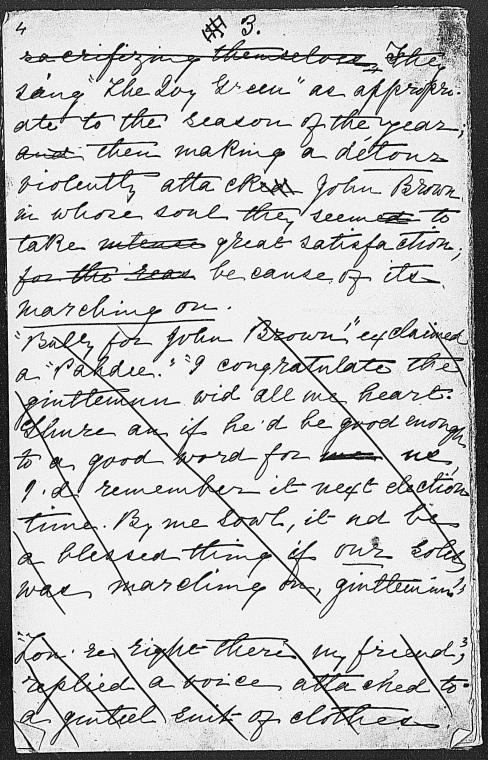 4 3.
sacrifizing themselves, They
sang "The Ivy Green" as appropri-
ate to the season of the year;
and then making a détour
violently attacked John Brown
in whose soul they seemed to
take intense great satisfaction,
for the reas because of its
marching on.
"Bully for John Brown!" exclaimed
a "Paddie." "I congratulate the
gintlemin wid all me heart.
Shure an if he'd be good enough
to a good word for me us,
I'd remember it next election
time. By me sowl, it ud be
a blessed thing if our soles
was marching on, gintlemin"
"You're right there my friend,"
replied a voice attached to
a genteel suit of clothes